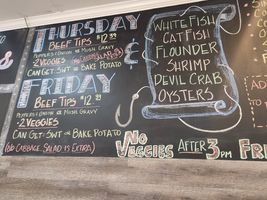 THURSDAY
BEEF TIPS $12.99
PEPPERS & ONION OR MUSH GRAVY
-2 VEGGIES
CAN GET SWT OR BAKE POTATO
&
FRIDAY
BEEF TIPS $12.99
PEPPERS & ONION OR MUSH GRAVY
-2 VEGGIES
CAN GET SWT OR BAKE POTATO
(NO CABBAGE, SALAD IS EXTRA)
WHITE FISH
CATFISH
FLOUNDER
SHRIMP
DEVIL CRAB
OYSTERS
NO
VEGGIES AFTER 3PM FRI